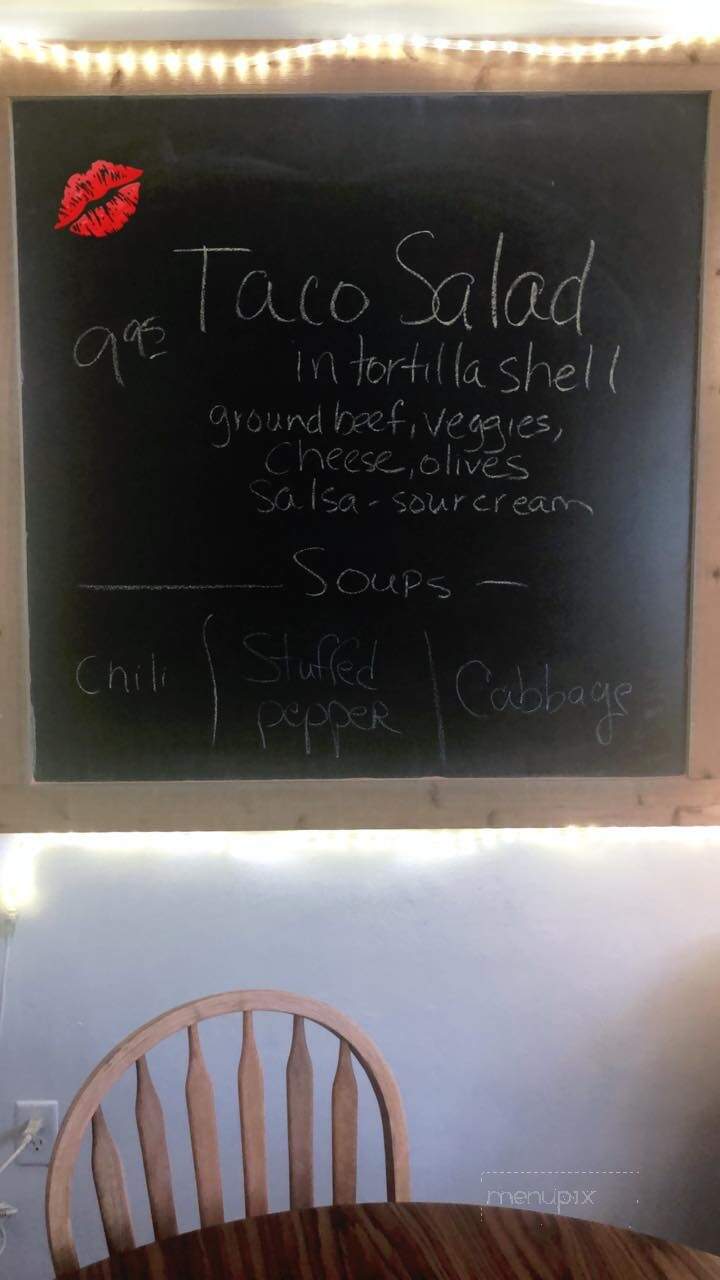 Taco Salad
9.95
in tortilla shell
ground beef, veggies,
Cheese, olives
Salsa - sour cream
Soups
Chili
Stuffed
pepper
Cabbage
menupix